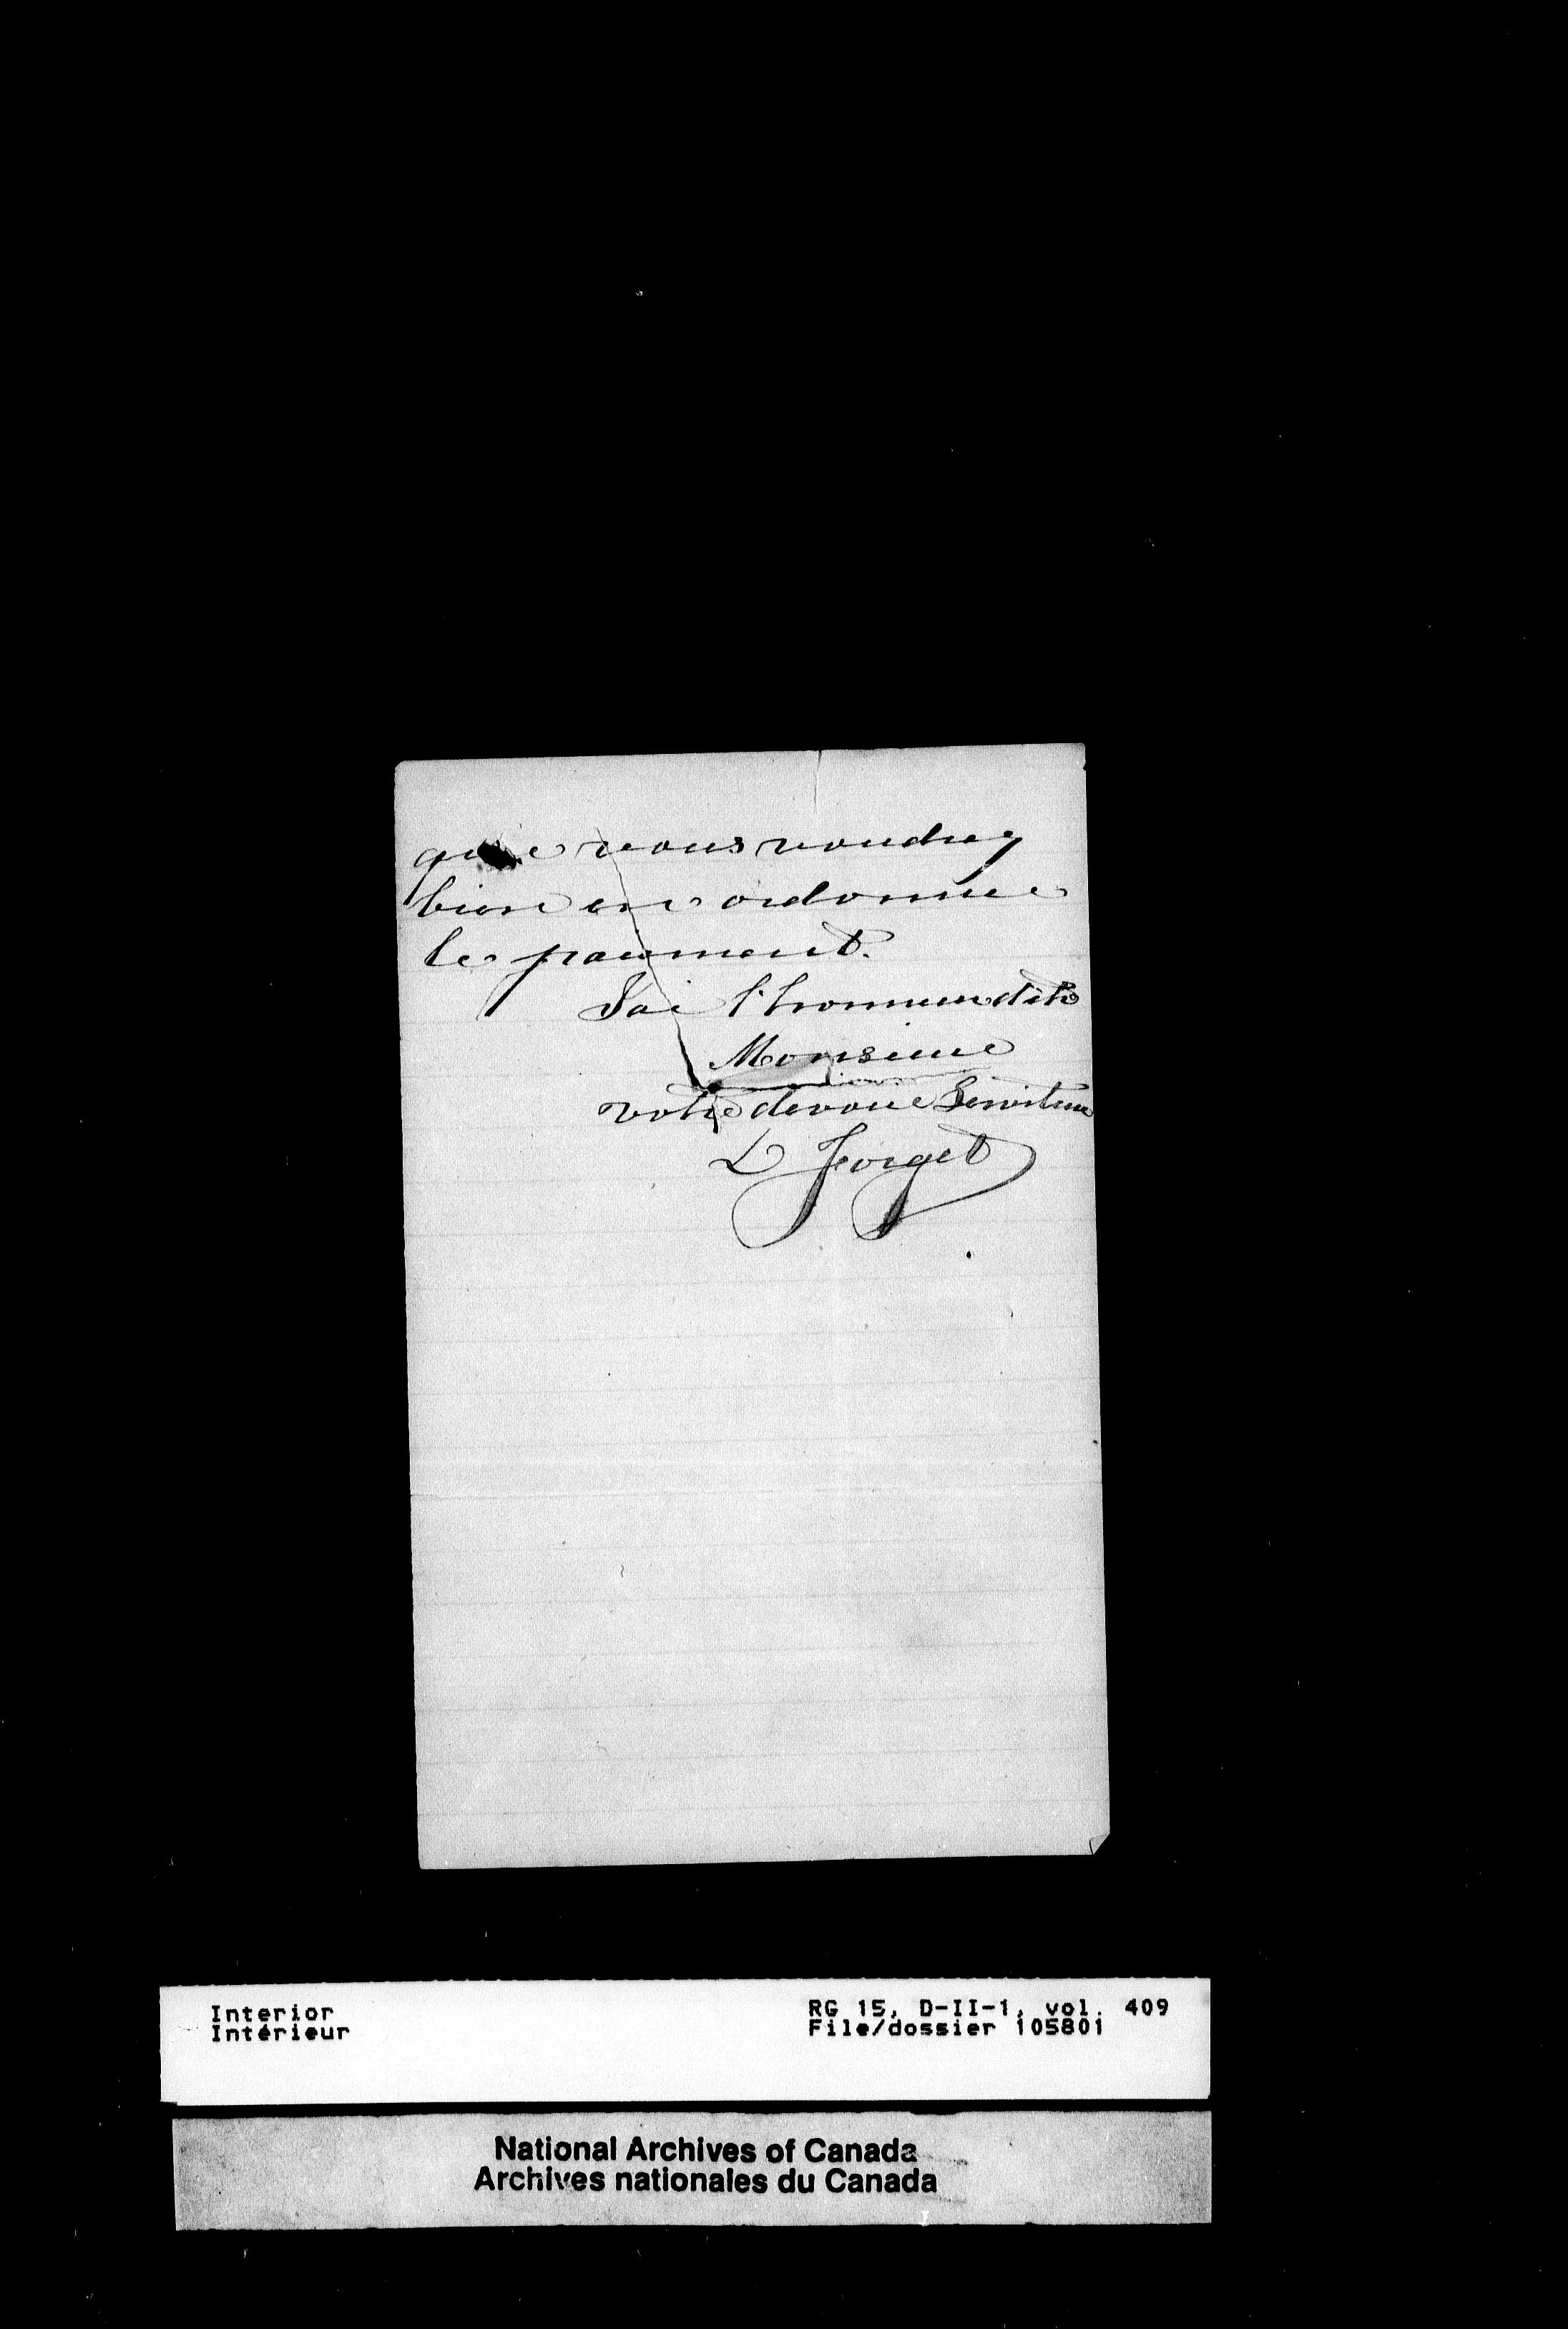 que vous voudrez
bien en ordonner
le paiment.
J'ai l'honneur d'être
Monsieur
votre devoué Serviteur
L Forget
Interior
Intérieur
RG 15, D-II-1, vol. 409
File/dossier 105801
National Archives of Canada
Archives nationales du Canada